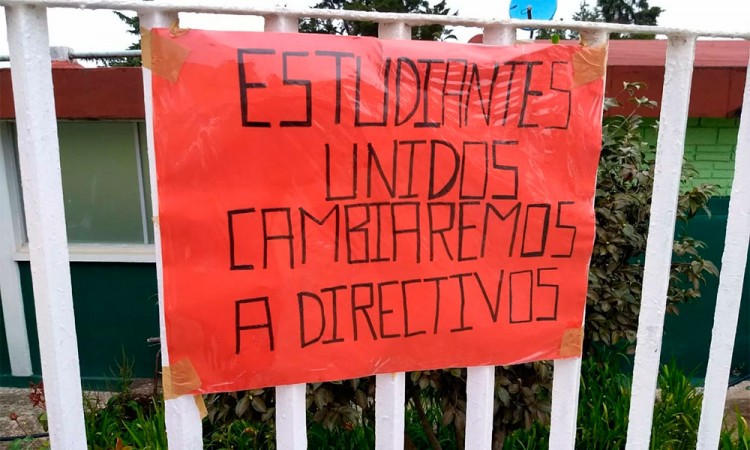 ESTUDIANTES
UNIDOS
CAMBIAREMOS
A DIRECTIVOS